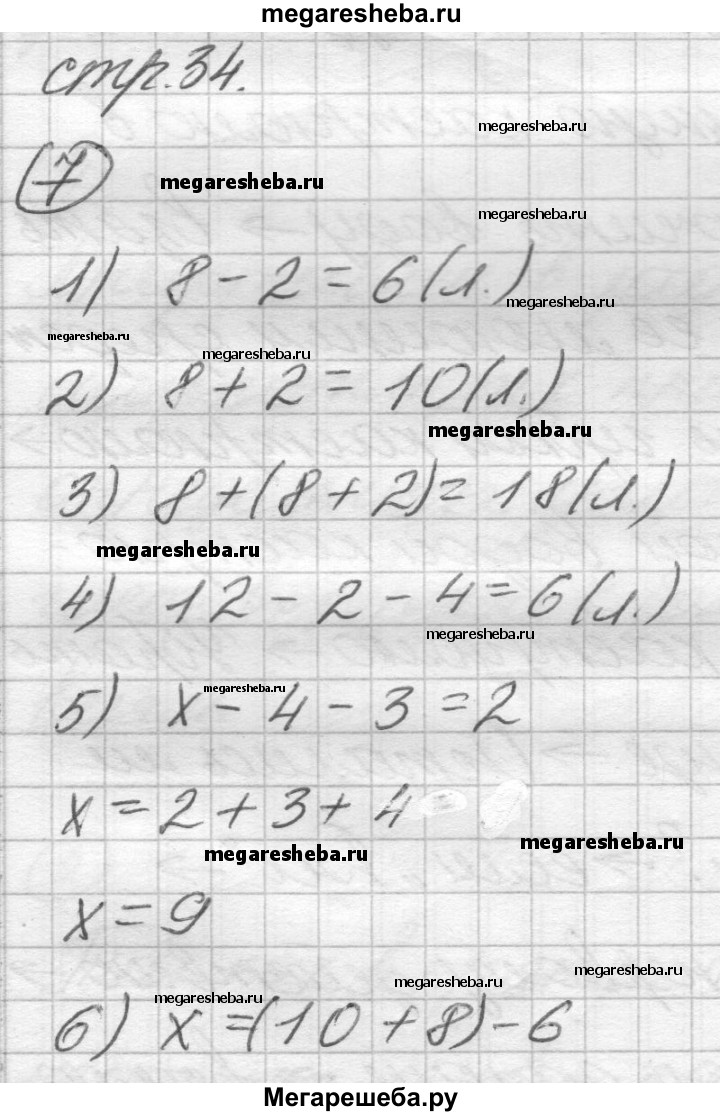 megaresheba.ru
стр. 34.
megaresheba.ru
7
megaresheba.ru
megaresheba.ru
1) 8 - 2 = 6 (л.)
megaresheba.ru
megaresheba.ru
megaresheba.ru
2) 8 + 2 = 10 (л.)
megaresheba.ru
3) 8 + (8 + 2) = 18 (л.)
megaresheba.ru
4) 12 - 2 - 4 = 6 (л.)
megaresheba.ru
megaresheba.ru
5) x - 4 - 3 = 2
x = 2 + 3 + 4
megaresheba.ru
megaresheba.ru
x = 9
megaresheba.ru
megaresheba.ru
megaresheba.ru
6) x = (10 + 8) - 6
Мегарешеба.ру